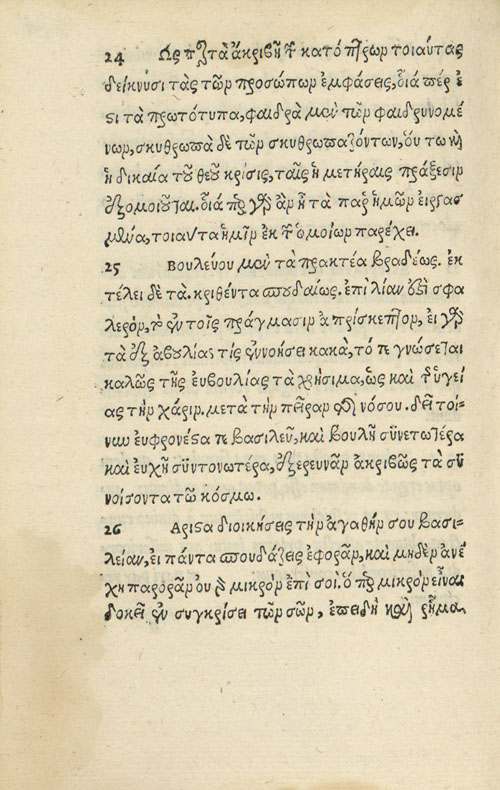 24 Ὥσπερ τὰ ἀκριβῆ τῶν κατόπτρων τοιαύτας
δείκνυσι τὰς τῶν προσώπων ἐμφάσεις, οἷά πέρ ἐ
στι τὰ πρωτότυπα, φαιδρὰ μὲν τῶν φαιδρυνομέ
νων, σκυθρωπὰ δὲ τῶν σκυθρωπαζόντων, οὕτω καὶ
ἡ δικαία τοῦ θεοῦ κρίσις, ταῖς ἡμετέραις πράξεσιν
ἐξομοιοῦται. οἷά περ γὰρ ἂν ᾖ τὰ παρ' ἡμῶν εἰργασ
μένα, τοιαῦτα ἡμῖν ἐκ τῶν ὁμοίων παρέχει.
25 Βουλεύου μὲν τὰ πρακτέα βραδέως. ἐκ
τέλει δὲ τὰ κριθέντα σπουδαίως. ἐπὶ λίαν ἐστὶ σφα
λερὸν, τὸ ἐν τοῖς πράγμασιν ἀπρίσκεπτον, εἰ γὰρ
τὰ ἐξ ἀβουλίας τὶς ἐννοήσει κακὰ, τότε γνώσεται
καλῶς τῆς εὐβουλίας τὰ χρήσιμα, ὡς καὶ τῆς ὑγεί
ας τὴν χάριν, μετὰ τὴν πεῖραν τῆς νόσου. δεῖ τοί-
νυν εὐφρονέστατε βασιλεῦ, καὶ βουλῇ συνετωτέρα
καὶ εὐχῇ συντονωτέρα, ἐξερευνᾶν ἀκριβῶς τὰ συ
νοίσοντα τῷ κόσμω.
26 Ἄριστα διοικήσεις τὴν ἀγαθήν σου βασι-
λείαν, εἰ πάντα σπουδάζεις ἐφορᾶν, καὶ μηδὲν ἀνέ
χῃ παρορᾶν οὐ γὰρ μικρὸν ἐπὶ σοὶ. ὅ περ μικρὸν εἶναι
δοκεῖ ἐν συγκρίσει τῶν σῶν, ἐπειδὴ καὶ ῥῆμα